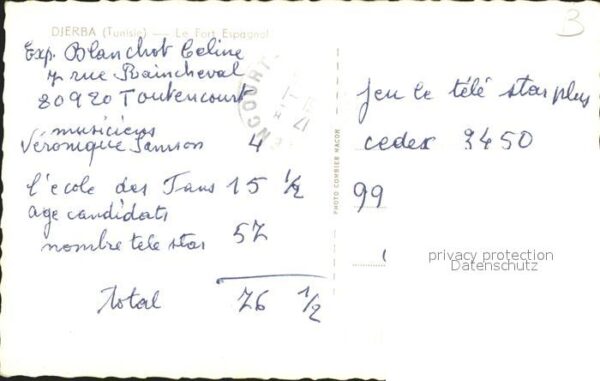 DJERBA (Tunisie) — Le Fort Espagnol
Exp. Blanchot Celine
7 rue Raincheval
80920 Toutencourt
musiciens
Véronique Sanson 4
l'école des Fans 15 1/2
age candidats
nombre télé star 57
Total 76 1/2
PHOTO COMBIER MACON
B
Jeu le télé star plus
cedex 3450
99
privacy protection
Datenschutz